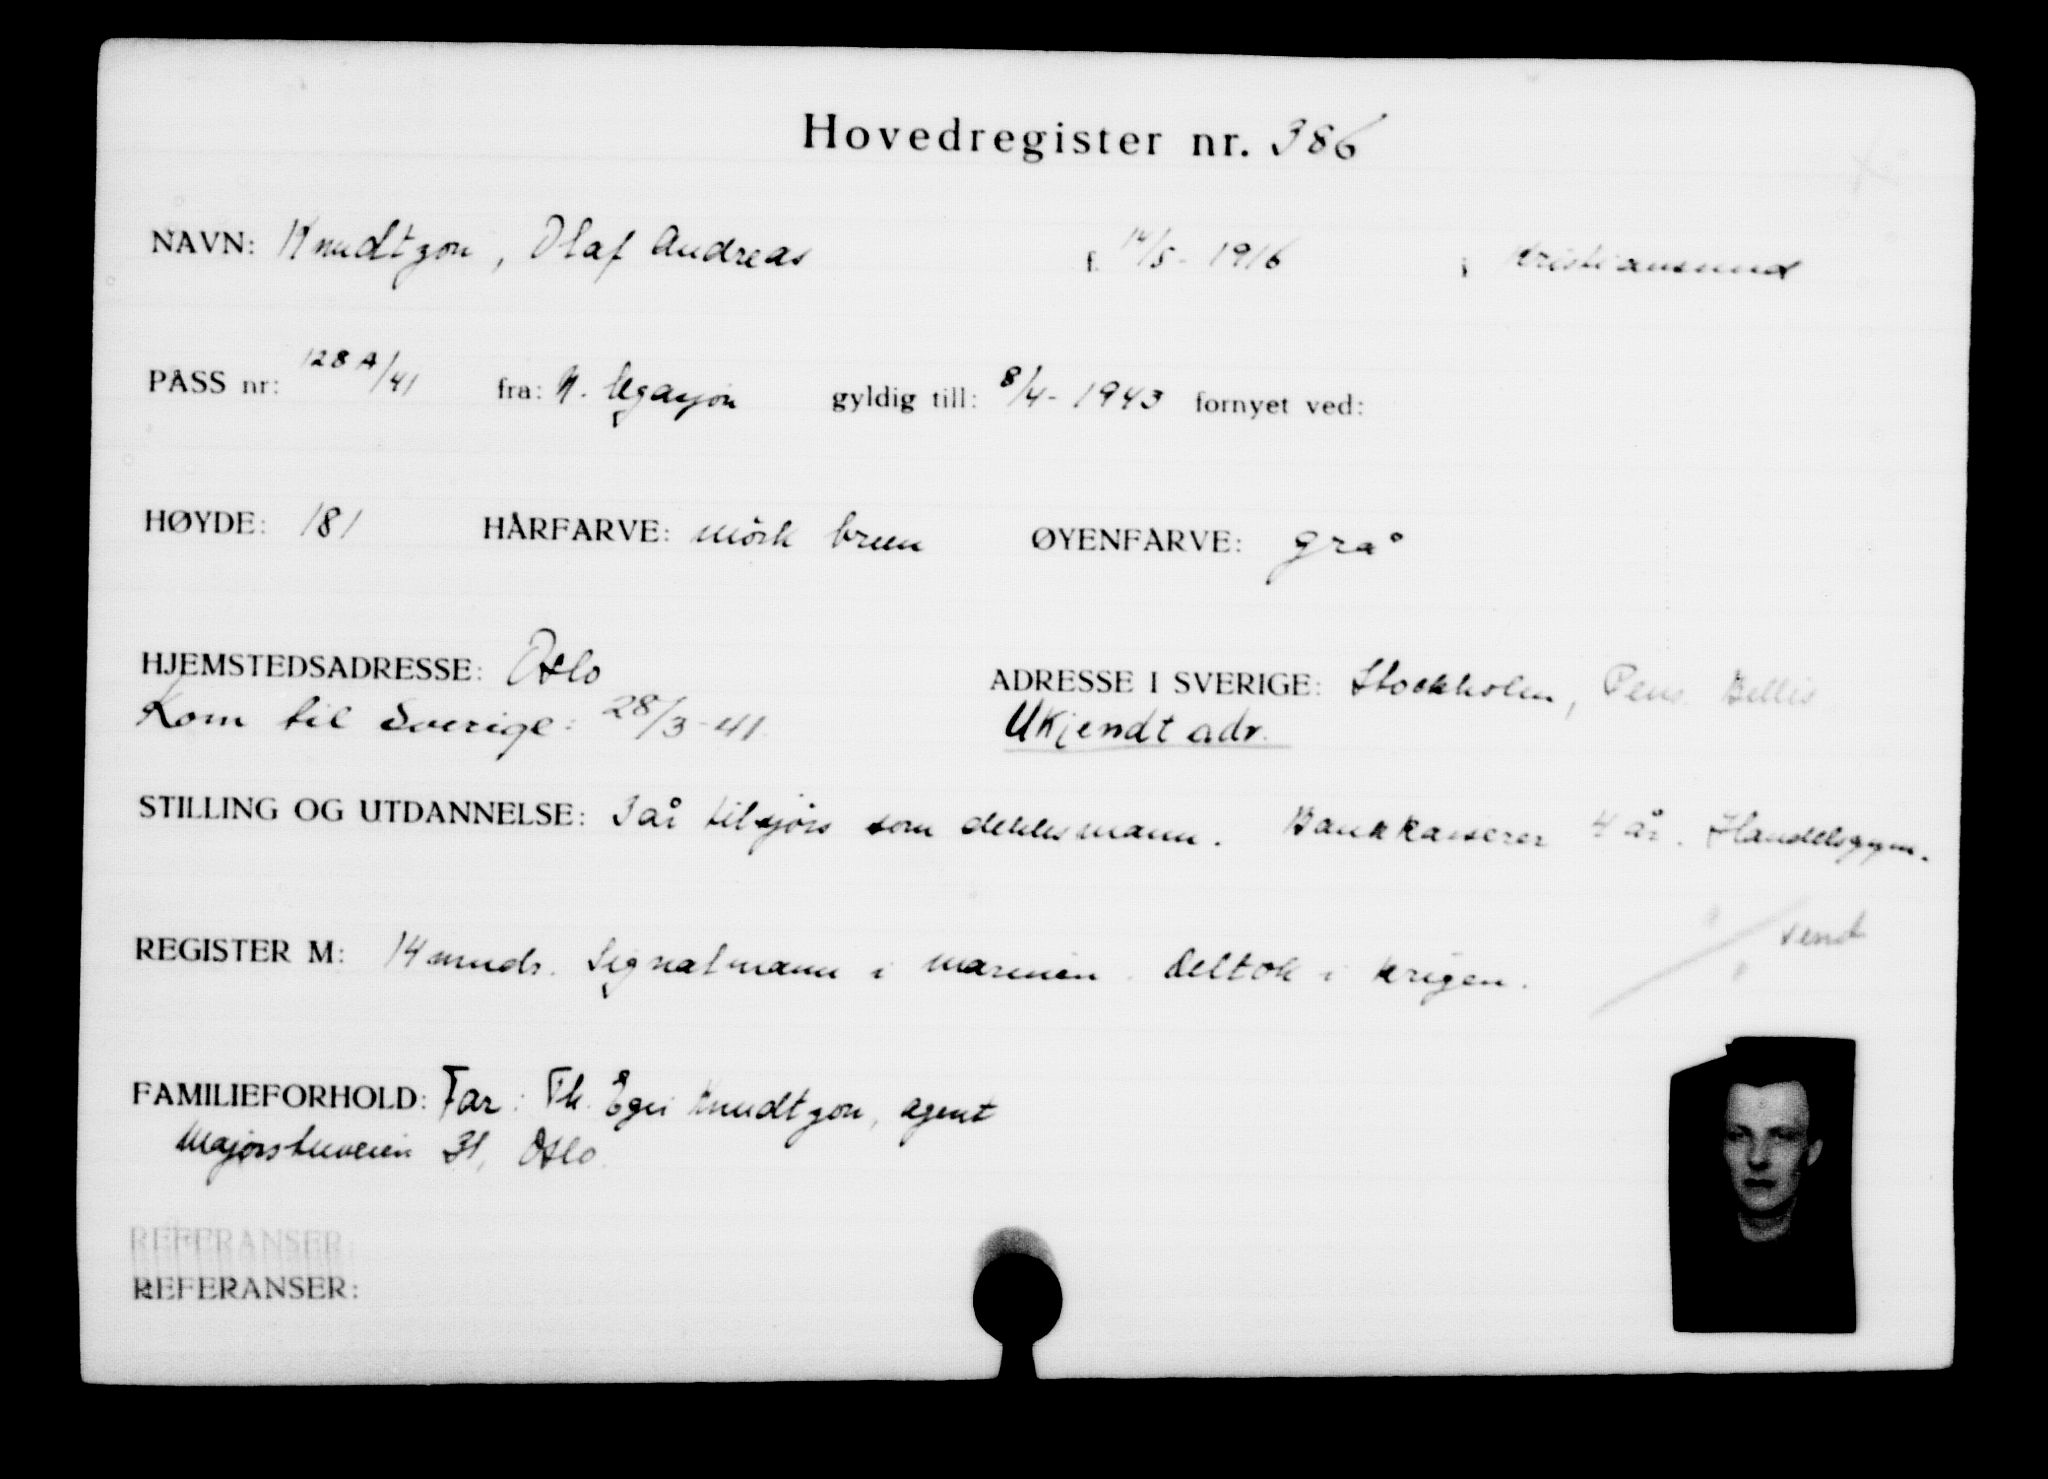 Hovedregister nr. 386
NAVN: Knudtzon, Olaf Andreas f. 14/5- 1916 i Kristiansund
PASS nr: 128 A/41 fra: N. legasjon gyldig till: 8/4- 1943 fornyet ved:
HØYDE: 181 HÅRFARVE: mörk brun ØYENFARVE: grå
HJEMSTEDSADRESSE: Oslo ADRESSE I SVERIGE: Stockholm, Pens. Bellis
Kom til Sverige: 28/3-41. Ukjendt adr.
STILLING OG UTDANNELSE: 3 år tilsjøs som dekksmann. Bankkasserer 4 år. Handelsgym.
REGISTER M: 14 mnds. Signalmann i marinen. Deltok i krigen. send
FAMILIEFORHOLD: Far: Th. Knudtzon, agent
Majorstuveien 31, Oslo.
REFERANSER:
REFERANSER: